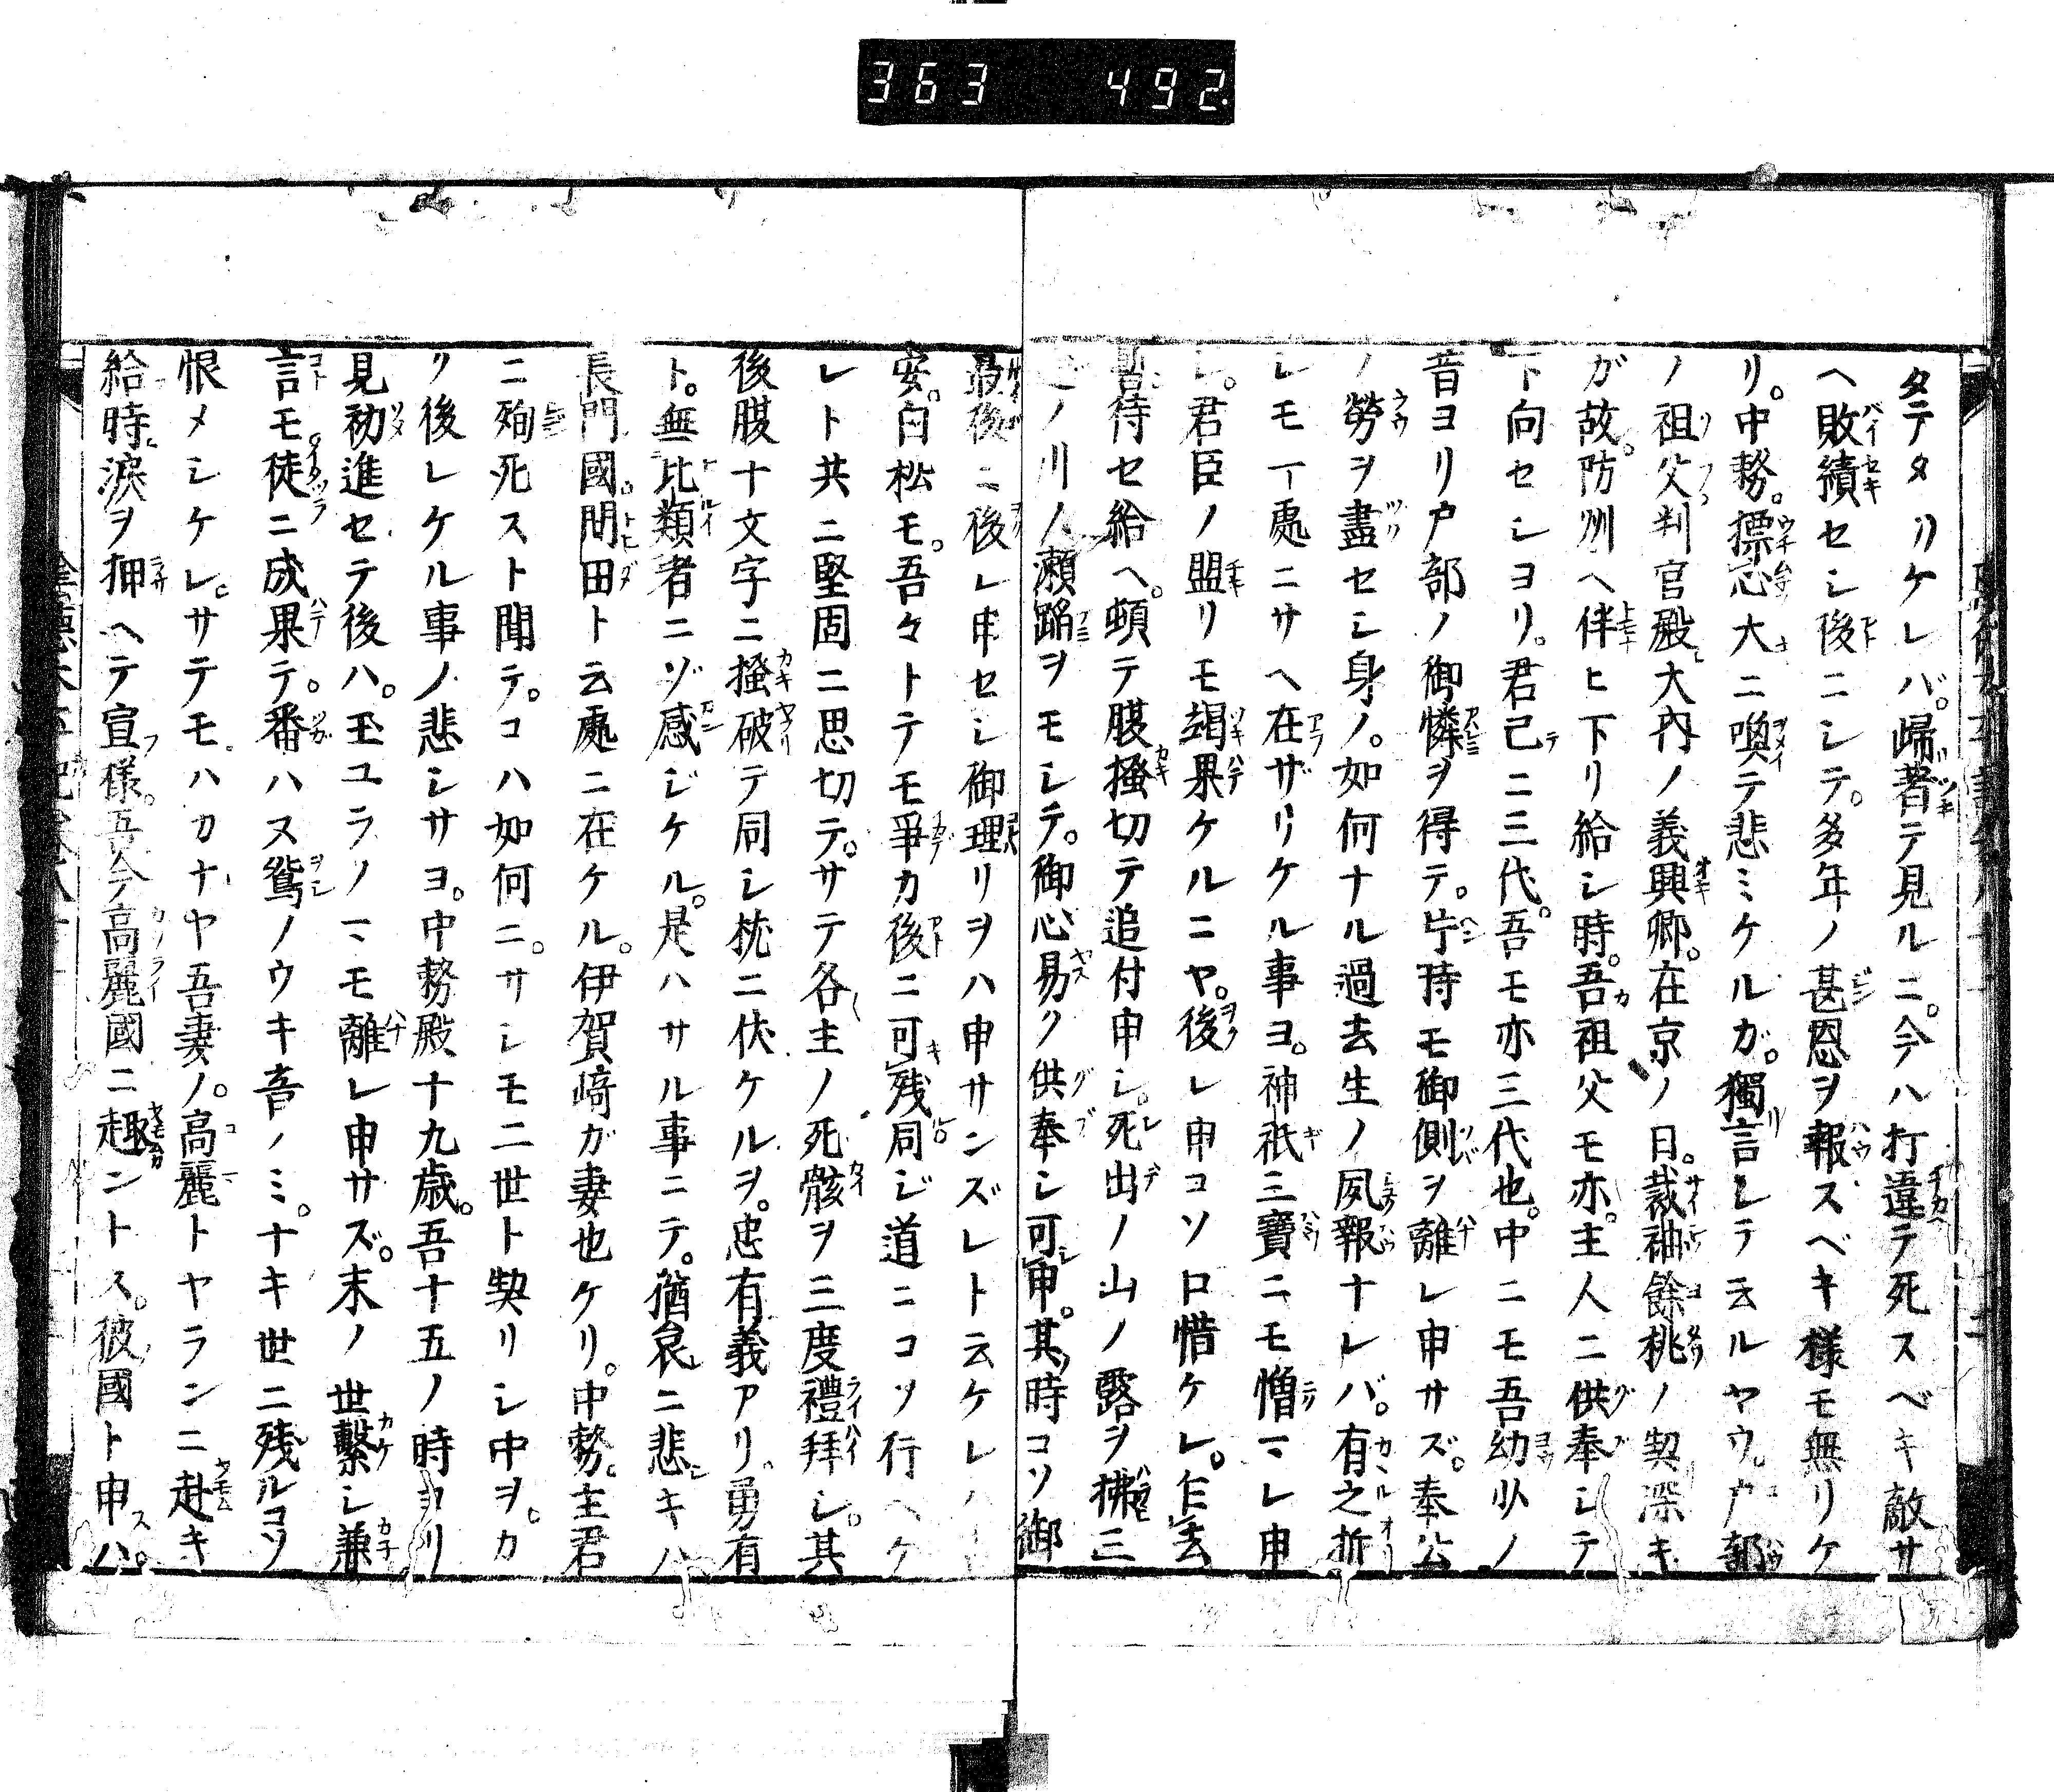 363 492.
タテタリケレバ。歸著テ見ルニ。今ハ打違テ死スベキ敵サ
ヘ敗績セシ後ニシテ。多年ノ甚恩ヲ報スベキ様モ無リケ
リ。中務。摽忩大ニ喚テ悲ミケルガ。獨言シテ云ルヤウ。戸部
ノ祖父判官殿大内ノ義興卿。在京ノ日。裁袖餘桃ノ契深キ
ガ故。防州ヘ伴ヒ下リ給シ時。吾祖父モ亦。主人ニ供奉シテ
下向セシヨリ。君己ニ三代。吾モ亦三代也。中ニモ吾幼少ノ
昔ヨリ戸部ノ御憐ヲ得テ。片時モ御側ヲ離レ申サズ。奉公
ノ勞ヲ盡セシ身ノ。如何ナル過去生ノ夙報ナレバ。有之折
レモ一處ニサヘ在ザリケル事ヨ。神祇三寶ニモ憎マレ申
シ。君臣ノ盟リモ竭果ケルニヤ。後レ申コソ口惜ケレ。乍去
暫待セ給ヘ。頓テ腹搔切テ追付申シ。死出ノ山ノ露ヲ拂三
ノ川ノ瀬蹈ヲモシテ。御心易ク供奉シ可申。其時コソ御
最後ニ後レ申セシ御理リヲハ申サンズレト云ケレ
安。白松モ。吾々トテモ爭カ後ニ可残同ジ道ニコソ行ヘケ
レト共ニ堅固ニ思切テ。サテ各主ノ死骸ヲ三度禮拜シ。其
後腹十文字ニ搔破テ同シ枕ニ伏ケルヲ。忠有義アリ。勇有
ト。無比類者ニゾ感ジケル。是ハサル事ニテ。猶哀ニ悲キハ
長門國。問田ト云處ニ在ケル。伊賀﨑ガ妻也ケリ。中務。主君
ニ殉死スト聞テ。コハ如何ニ。サシモ二世ト契リシ中ヲ。カ
リ後レケル事ノ悲シサヨ。中務殿十九歳。吾十五ノ時ヨリ
見初進セテ後ハ。玉ユラノマモ離レ申サズ。末ノ世繫シ兼
言モ徒ニ成果テ。番ハヌ鴛ノウキ音ノミ。ナキ世ニ残ルコソ
恨メシケレ。サテモハカナヤ吾妻ノ。高麗トヤランニ赴キ
給時。淚ヲ押ヘテ宣様。吾今高麗國ニ趣ントス。彼國ト申ハ。